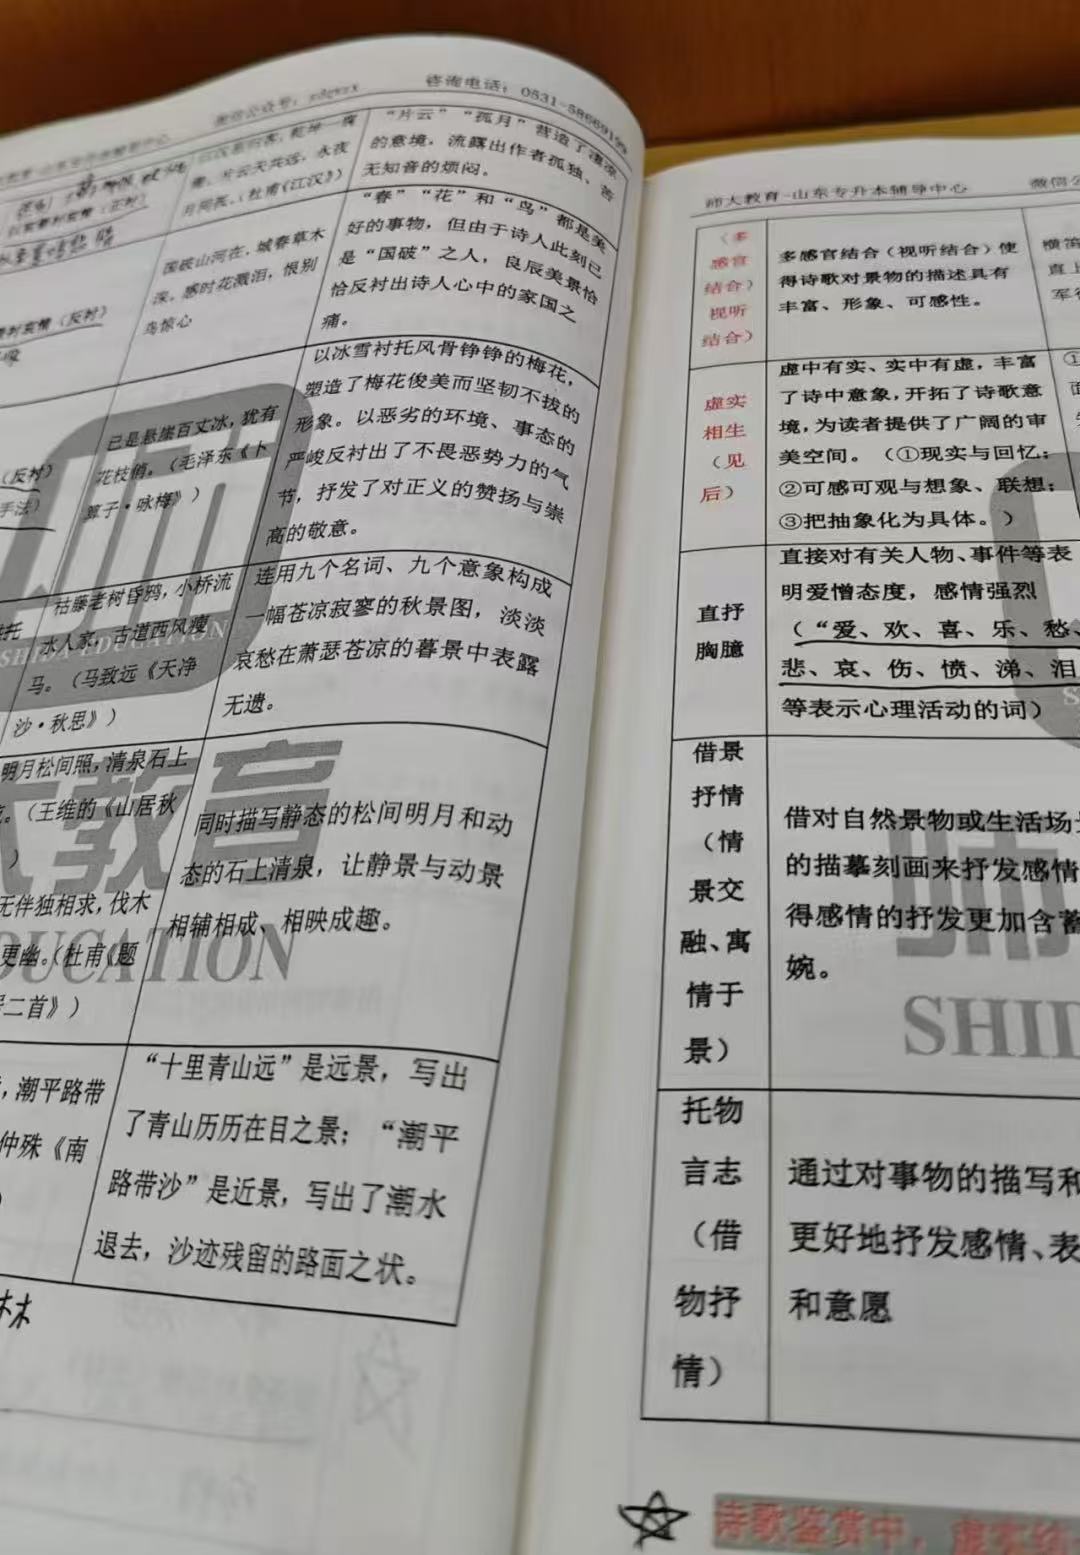 咨询电话：0531-58669199
微信公众号：
"片云""孤月"营造了凄凉
的意境，流露出作者孤独、苦
无知音的烦闷。
片云天共远，永夜
月同孤。（杜甫《江汉》）
国破山河在，城春草木
深。感时花溅泪，恨别
鸟惊心
"春""花"和"鸟"都是美
好的事物，但由于诗人此刻已
是"国破"之人，良辰美景恰
恰反衬出诗人心中的家国之
痛。
衬哀情（反衬）
（反衬）
手法）
已是悬崖百丈冰，犹有
花枝俏。（毛泽东《卜
算子·咏梅》）
以冰雪衬托风骨铮铮的梅花，
塑造了梅花俊美而坚韧不拔的
形象。以恶劣的环境、事态的
严峻反衬出了不畏恶势力的气
节，抒发了对正义的赞扬与崇
高的敬意。
枯藤老树昏鸦，小桥流
水人家，古道西风瘦
马。（马致远《天净
沙·秋思》）
连用九个名词、九个意象构成
一幅苍凉寂寥的秋景图，淡淡
哀愁在萧瑟苍凉的暮景中表露
无遗。
明月松间照，清泉石上
。（王维的《山居秋
）
无伴独相求，伐木
更幽。（杜甫《题
二首》）
同时描写静态的松间明月和动
态的石上清泉，让静景与动景
相辅相成、相映成趣。
，潮平路带
仲殊《南
"十里青山远"是远景，写出
了青山历历在目之景；"潮平
路带沙"是近景，写出了潮水
退去，沙迹残留的路面之状。
SHIDA EDUCATION
大教育
EDUCATION
师大教育-山东专升本辅导中心
微信公
（多
感官
结合）
视听
结合）
多感官结合（视听结合）使
得诗歌对景物的描述具有
丰富、形象、可感性。
横笛
直上
军行
虚实
相生
（见
后）
虚中有实、实中有虚，丰富
了诗中意象，开拓了诗歌意
境，为读者提供了广阔的审
美空间。（①现实与回忆；
②可感可观与想象、联想；
③把抽象化为具体。）
①
直抒
胸臆
直接对有关人物、事件等表
明爱憎态度，感情强烈
（"爱、欢、喜、乐、愁、
悲、哀、伤、愤、涕、泪
等表示心理活动的词）
借景
抒情
（情
景交
融、寓
情于
景）
借对自然景物或生活场
的描摹刻画来抒发感情
得感情的抒发更加含蓄
婉。
托物
言志
（借
物抒
情）
通过对事物的描写和
更好地抒发感情、表
和意愿
师
SHID
诗歌鉴赏中，虚实结